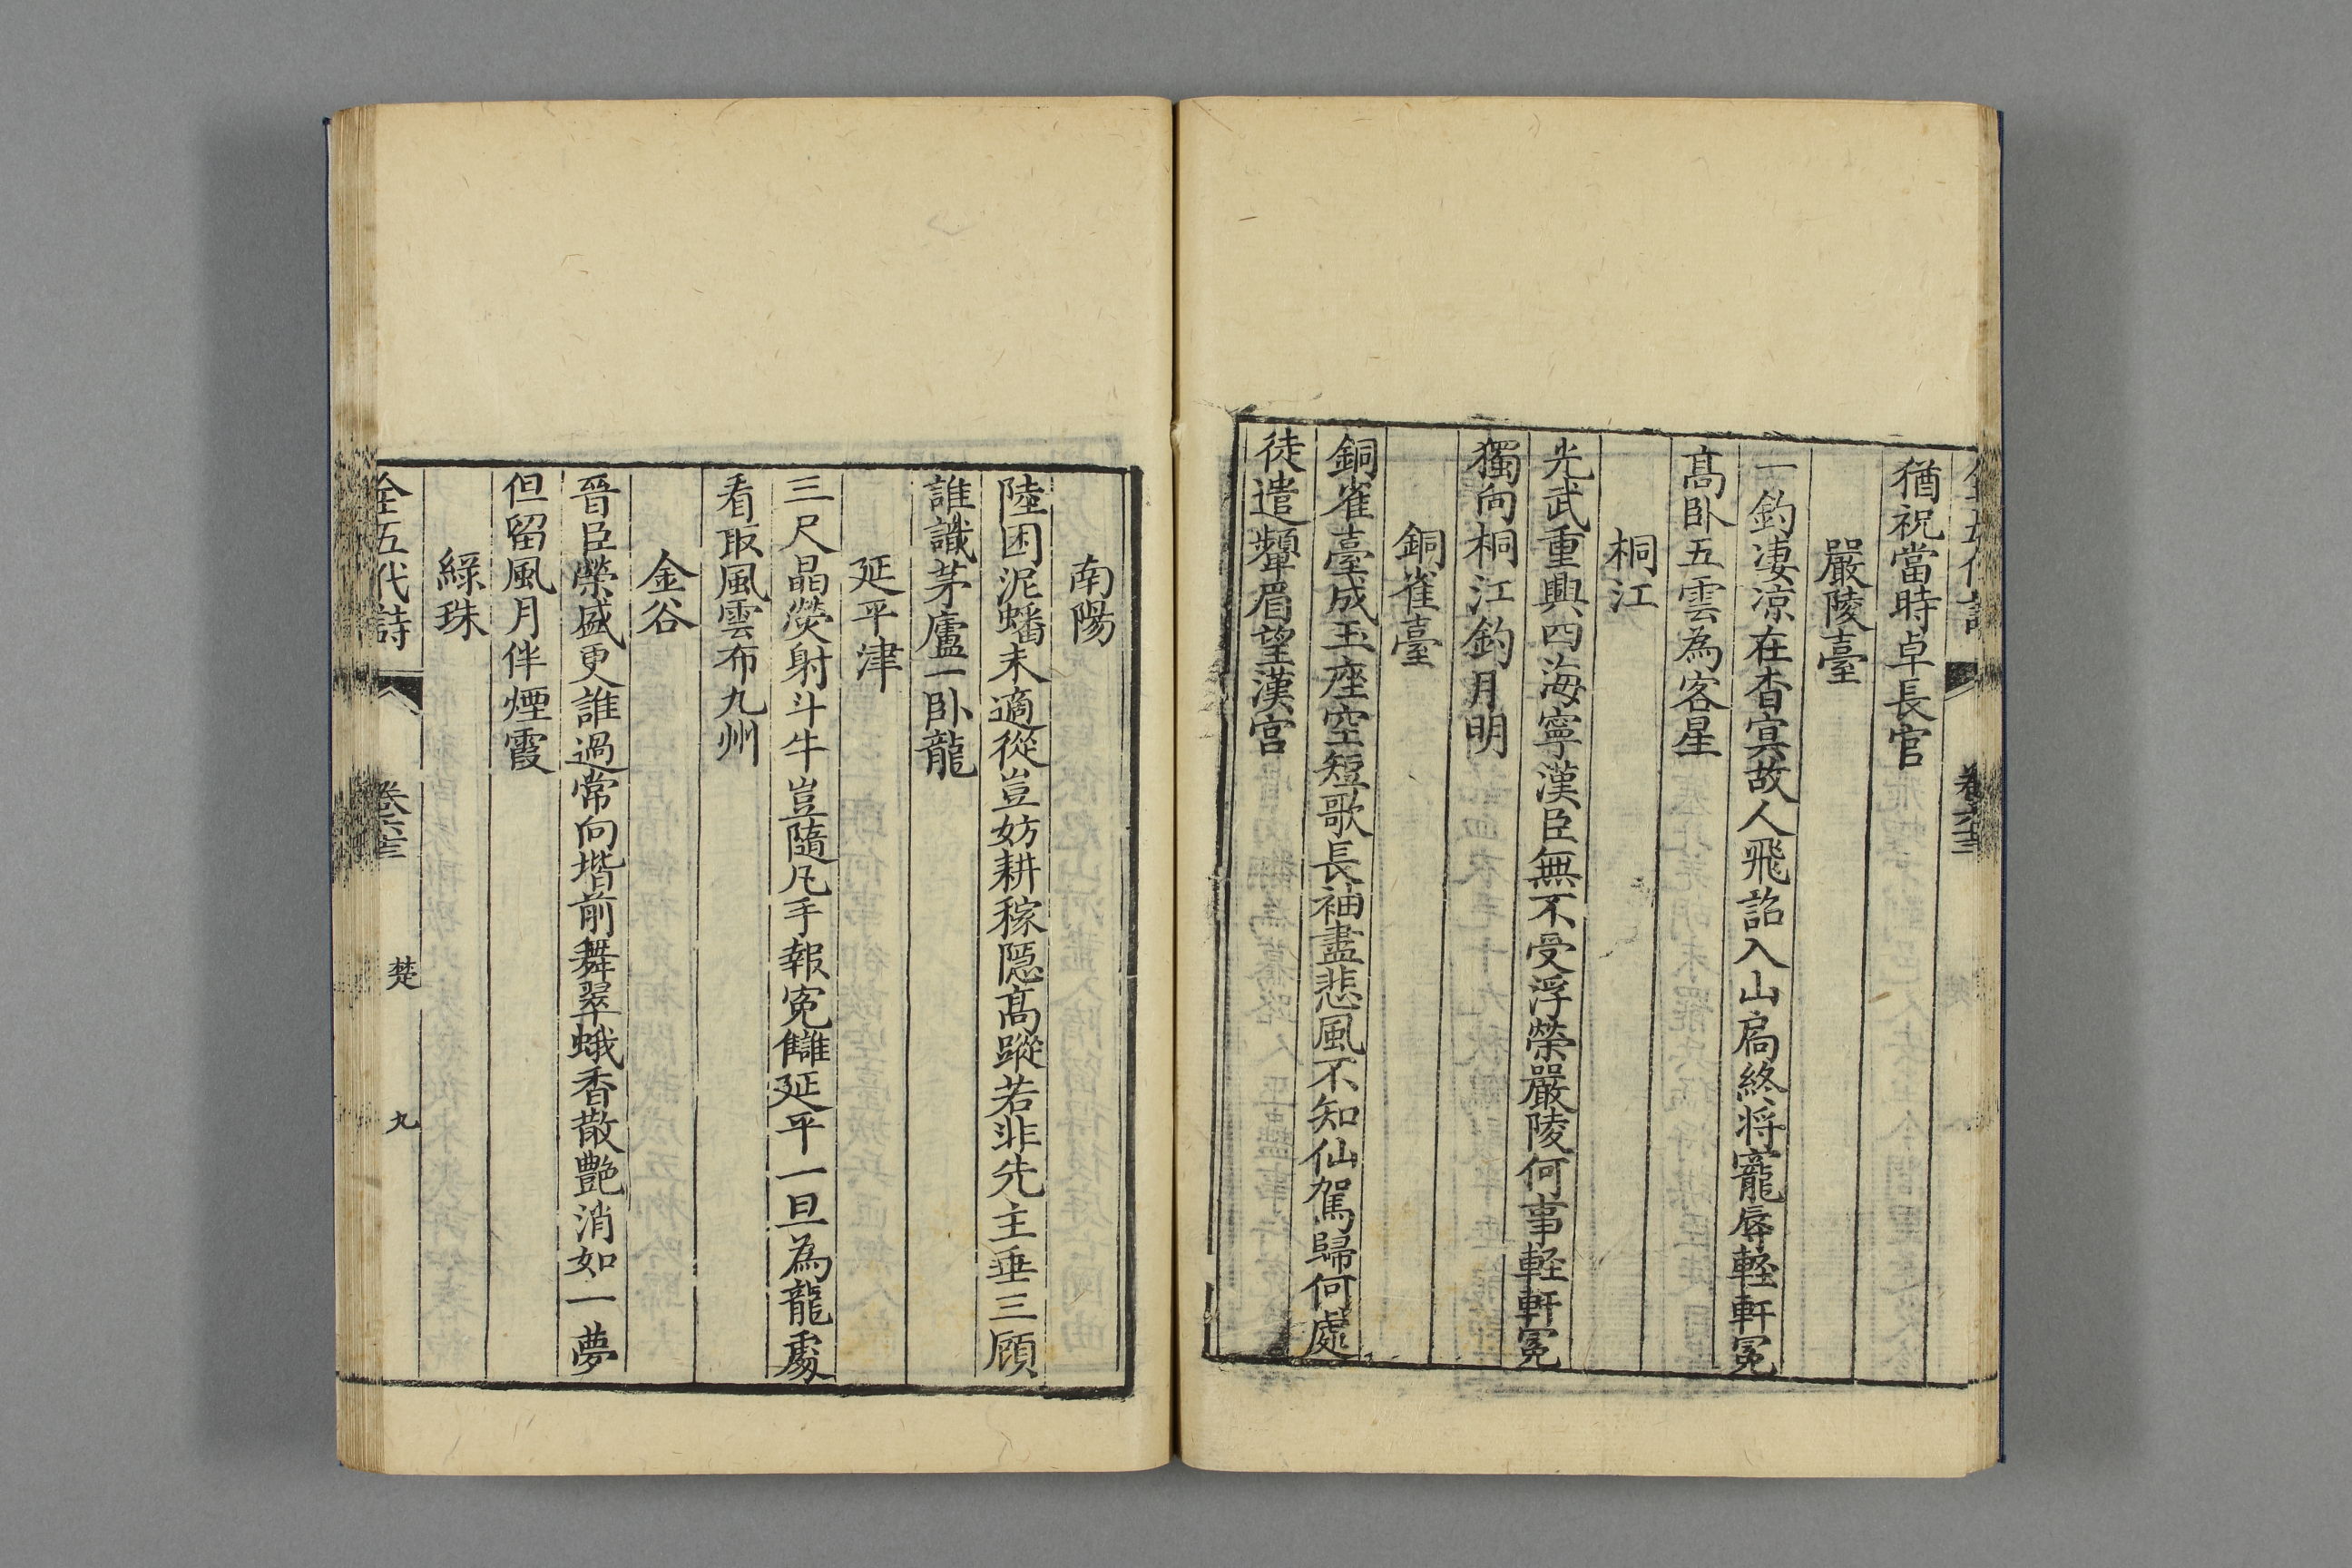 全五代詩 卷六十三
猶祝當時卓長官
嚴陵臺
一釣凄凉在杳冥故人飛詔入山扃終將寵辱輕軒冕
高臥五雲為客星
桐江
光武重興四海寧漢臣無不受浮榮嚴陵何事輕軒冕
獨向桐江釣月明
銅雀臺
銅雀臺成玉座空短歌長袖盡悲風不知仙駕歸何處
徒遣顰眉望漢宮
南陽
陸困泥蟠未適從豈妨耕稼隱高蹤若非先主垂三顧
誰識茅廬一臥龍
延平津
三尺晶熒射斗牛豈隨凡手報寃讎延平一旦為龍處
看取風雲布九州
金谷
晉臣榮盛更誰過常向堦前舞翠蛾香散艷消如一夢
但留風月伴煙霞
綠珠
全五代詩 卷六十三 楚 九